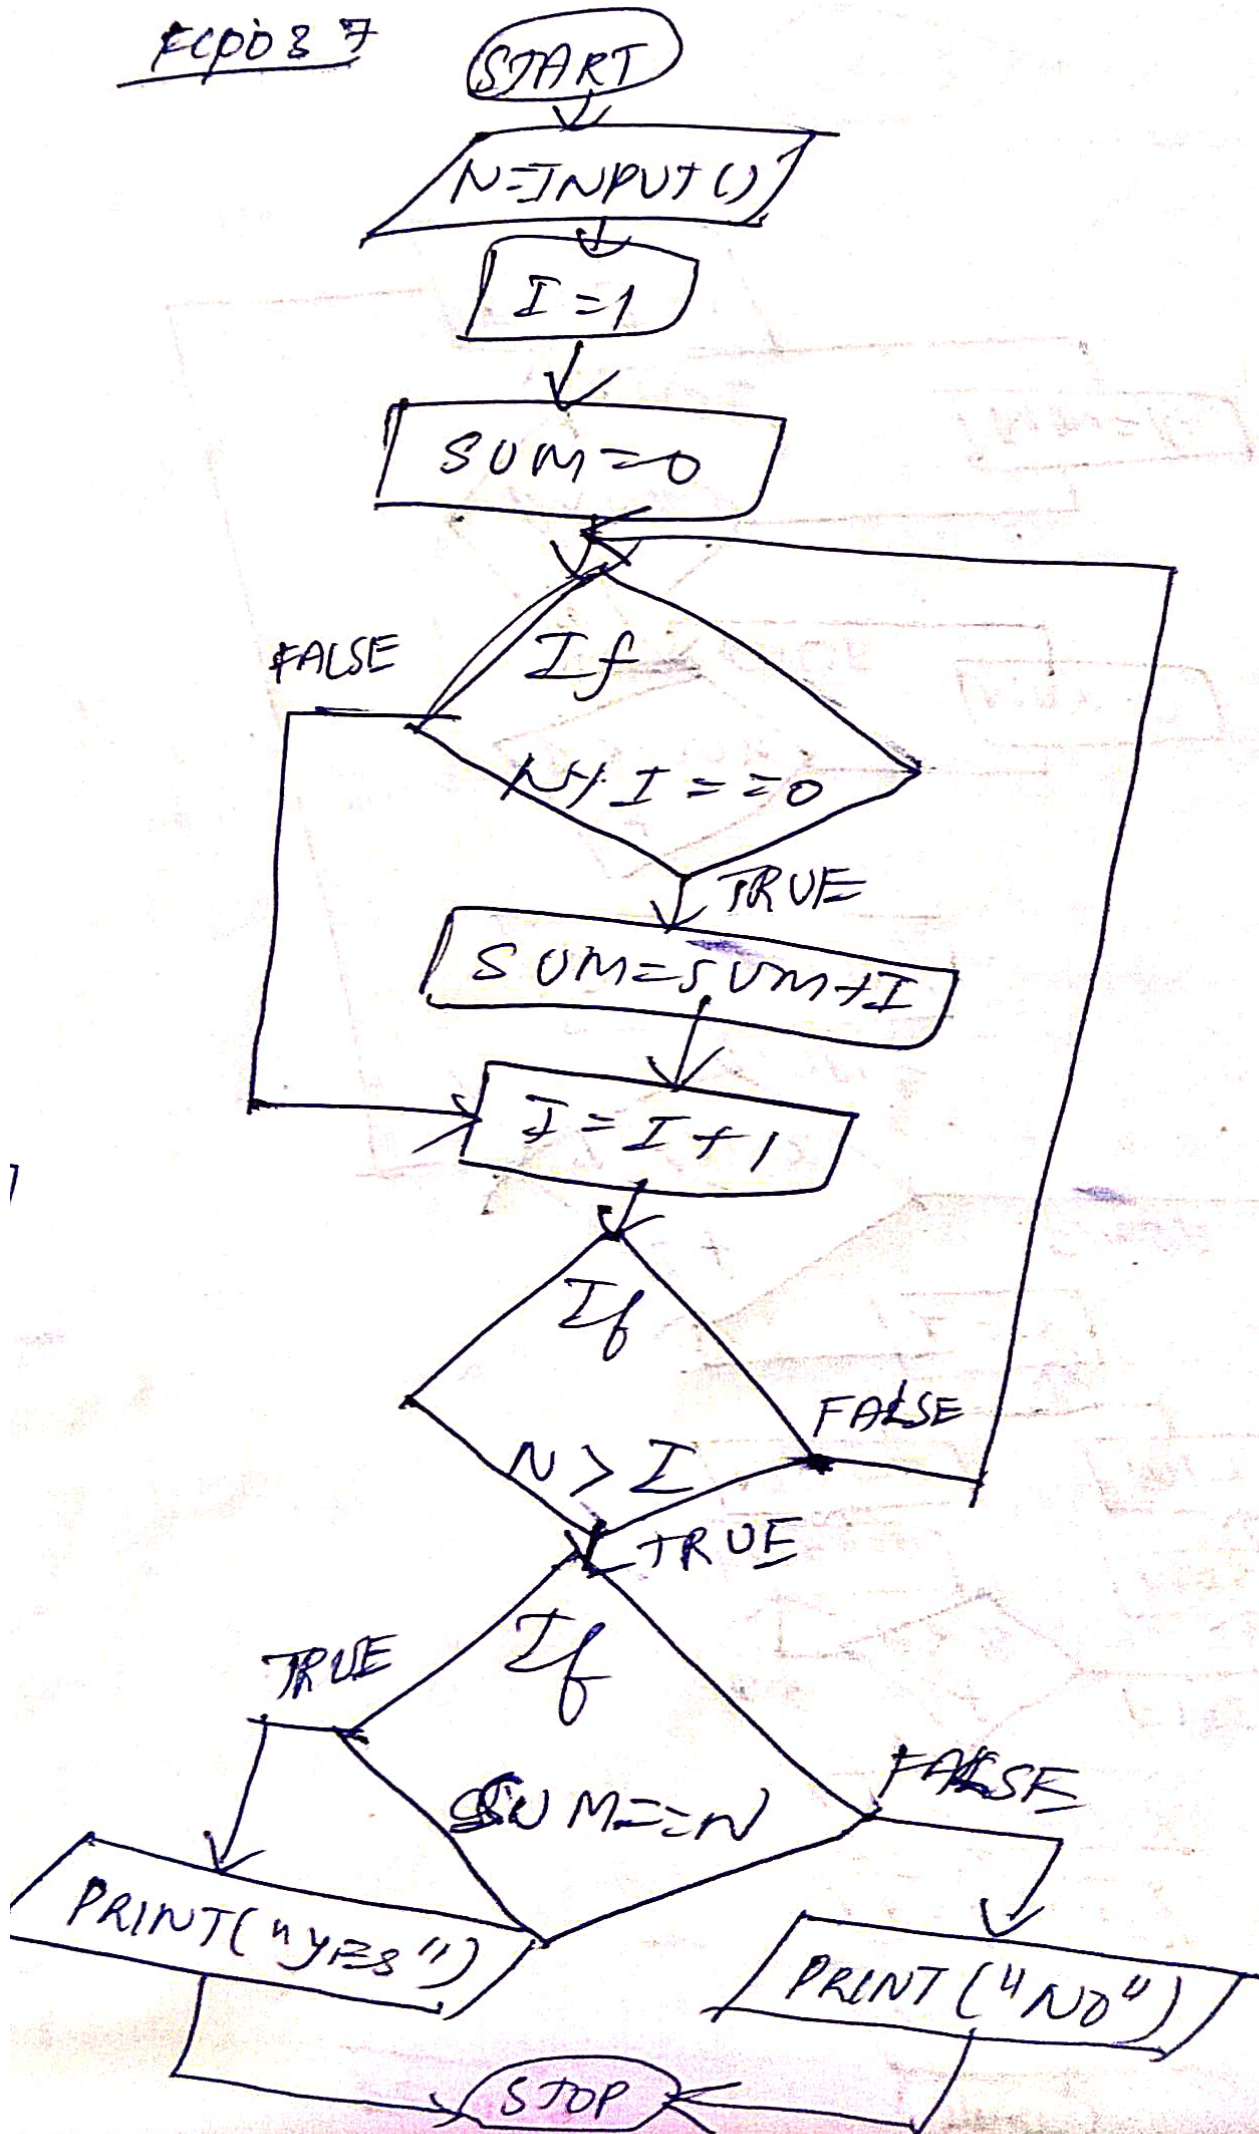 FCP037
START
N=INPUT()
I=1
SUM=0
If
FALSE
N%I==0
TRUE
SUM=SUM+I
I=I+1
If
FALSE
N>I
TRUE
If
TRUE
FALSE
SUM==N
PRINT("YES")
PRINT("NO")
STOP